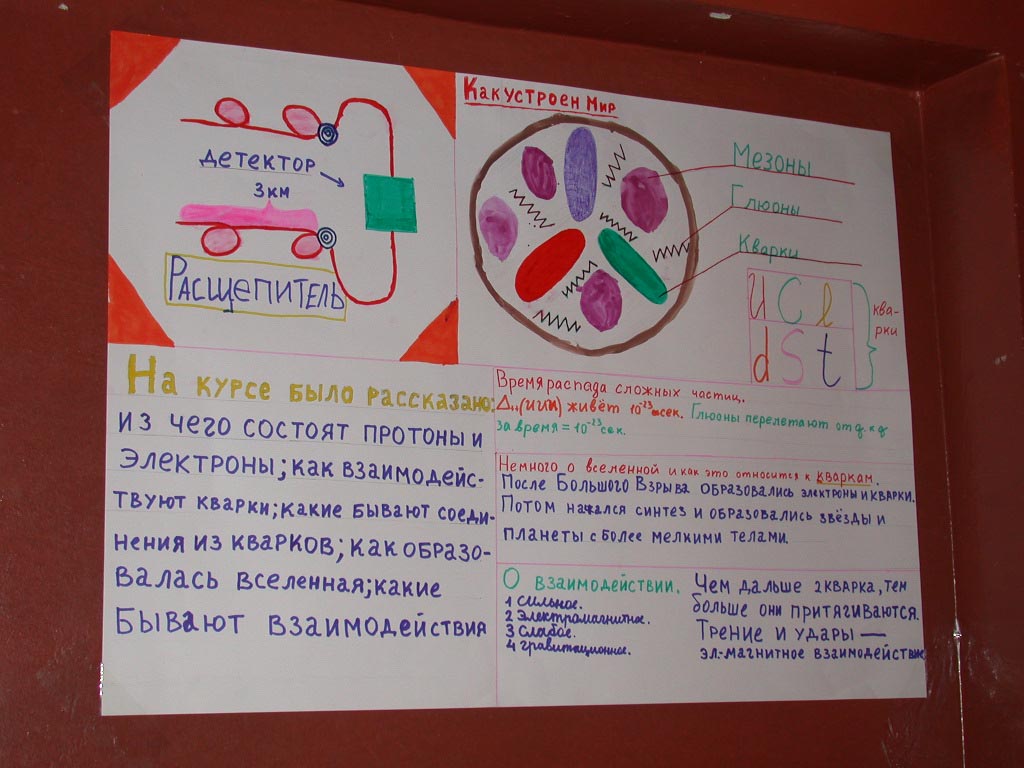 детектор
3 км
Расщепитель
Как устроен мир
Мезоны
Глюоны
Кварки
u C l
d S t
ква-
рки
На курсе было рассказано:
из чего состоят протоны и
электроны; как взаимодейс-
твуют кварки; какие бывают соеди-
нения из кварков; как образо-
валась вселенная; какие
бывают взаимодействия
Время распада сложных частиц.
живёт 10⁻²³ сек. Глюоны перелетают от q к q
за время = 10⁻²³ сек.
Немного о вселенной и как это относится к кваркам.
После Большого Взрыва образовались электроны и кварки.
Потом начался синтез и образовались звёзды и
планеты с более мелкими телами.
О взаимодействии.
1 Сильное.
2 Электромагнитное.
3 Слабое.
4 гравитационное.
Чем дальше 2 кварка, тем
больше они притягиваются.
Трение и удары —
эл.-магнитное взаимодействие